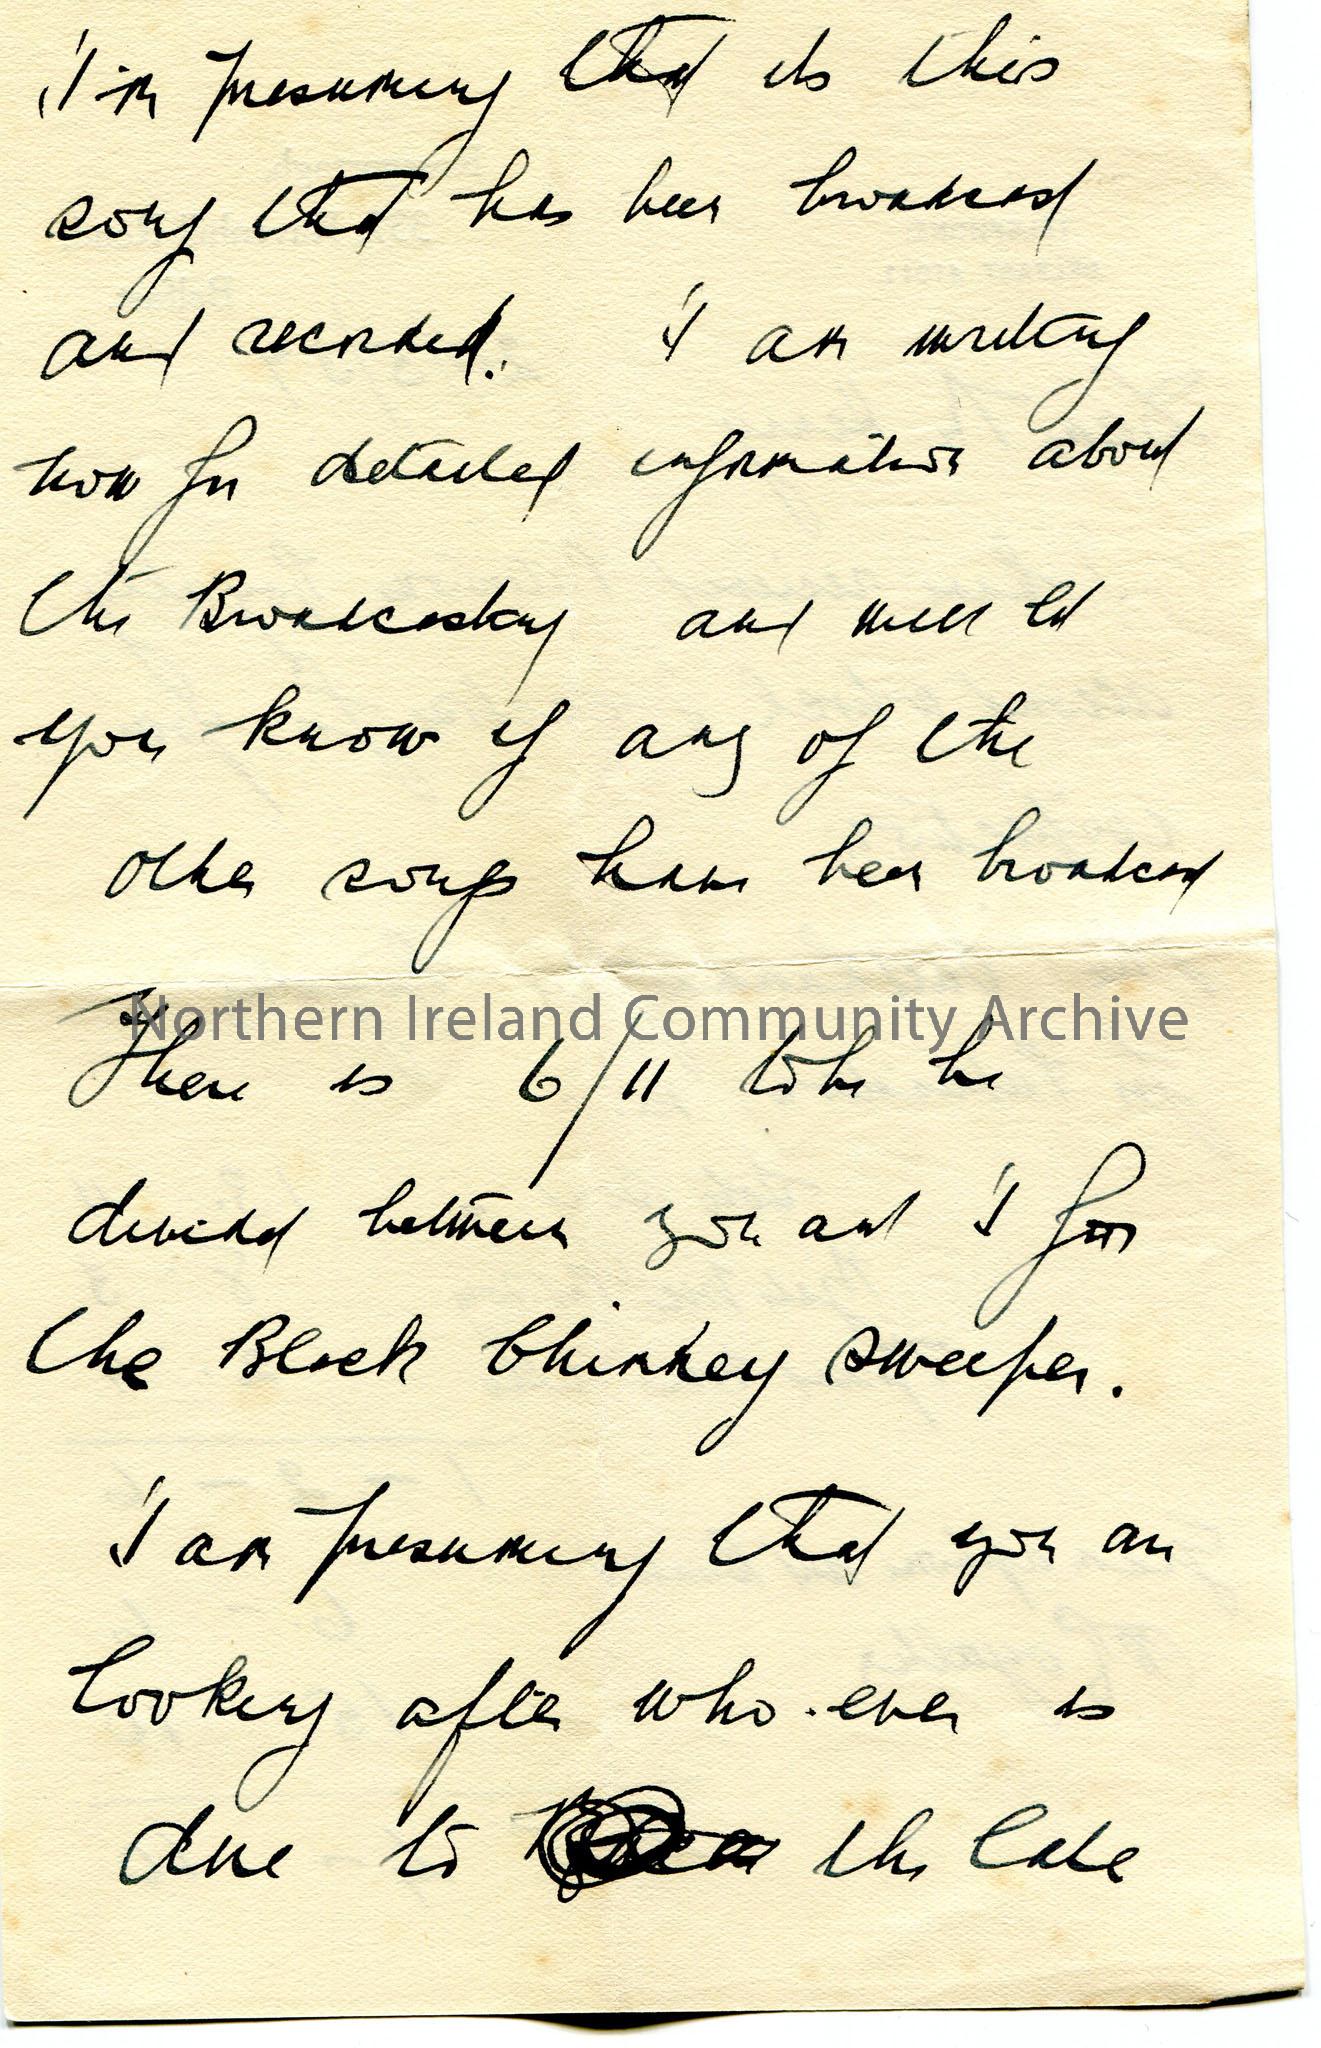 I'm presuming that its this
song that has been broadcast
and recorded. I am writing
now for detailed information about
the Broadcasting and will let
you know if any of the
other songs have been broadcast
Northern Ireland Community Archive
There is 6/11 to be
divided between you and I for
the Black Chimney Sweeper.
I am presuming that you are
looking after who-ever is
due to the late